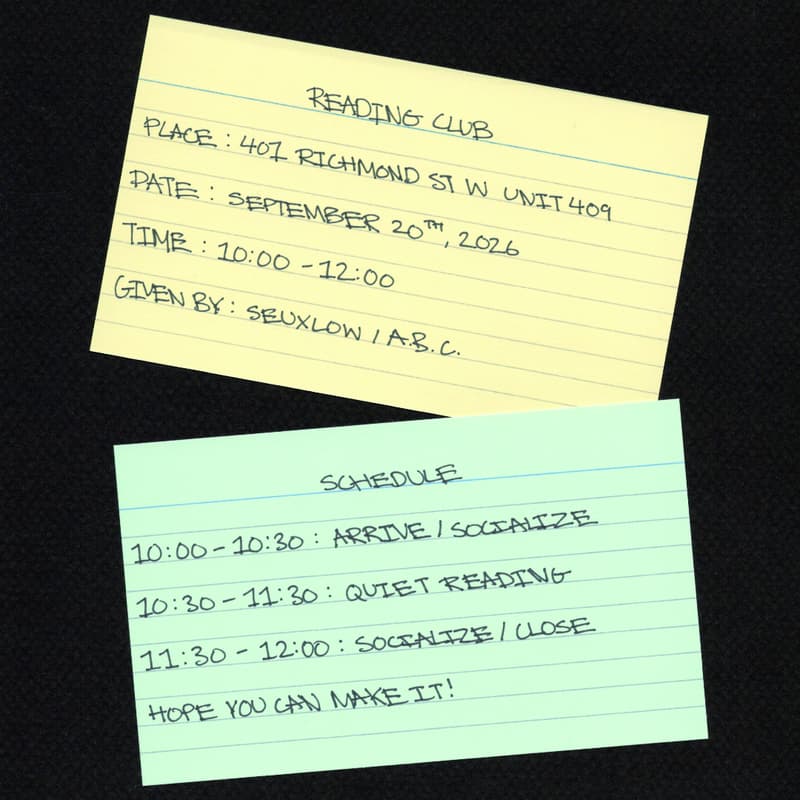 READING CLUB
PLACE : 401 RICHMOND ST W UNIT 409
DATE : SEPTEMBER 20TH, 2026
TIME : 10:00 - 12:00
GIVEN BY : SEUXLOW / A.B.C.
SCHEDULE
10:00 - 10:30 : ARRIVE / SOCIALIZE
10:30 - 11:30 : QUIET READING
11:30 - 12:00 : SOCIALIZE / CLOSE
HOPE YOU CAN MAKE IT!